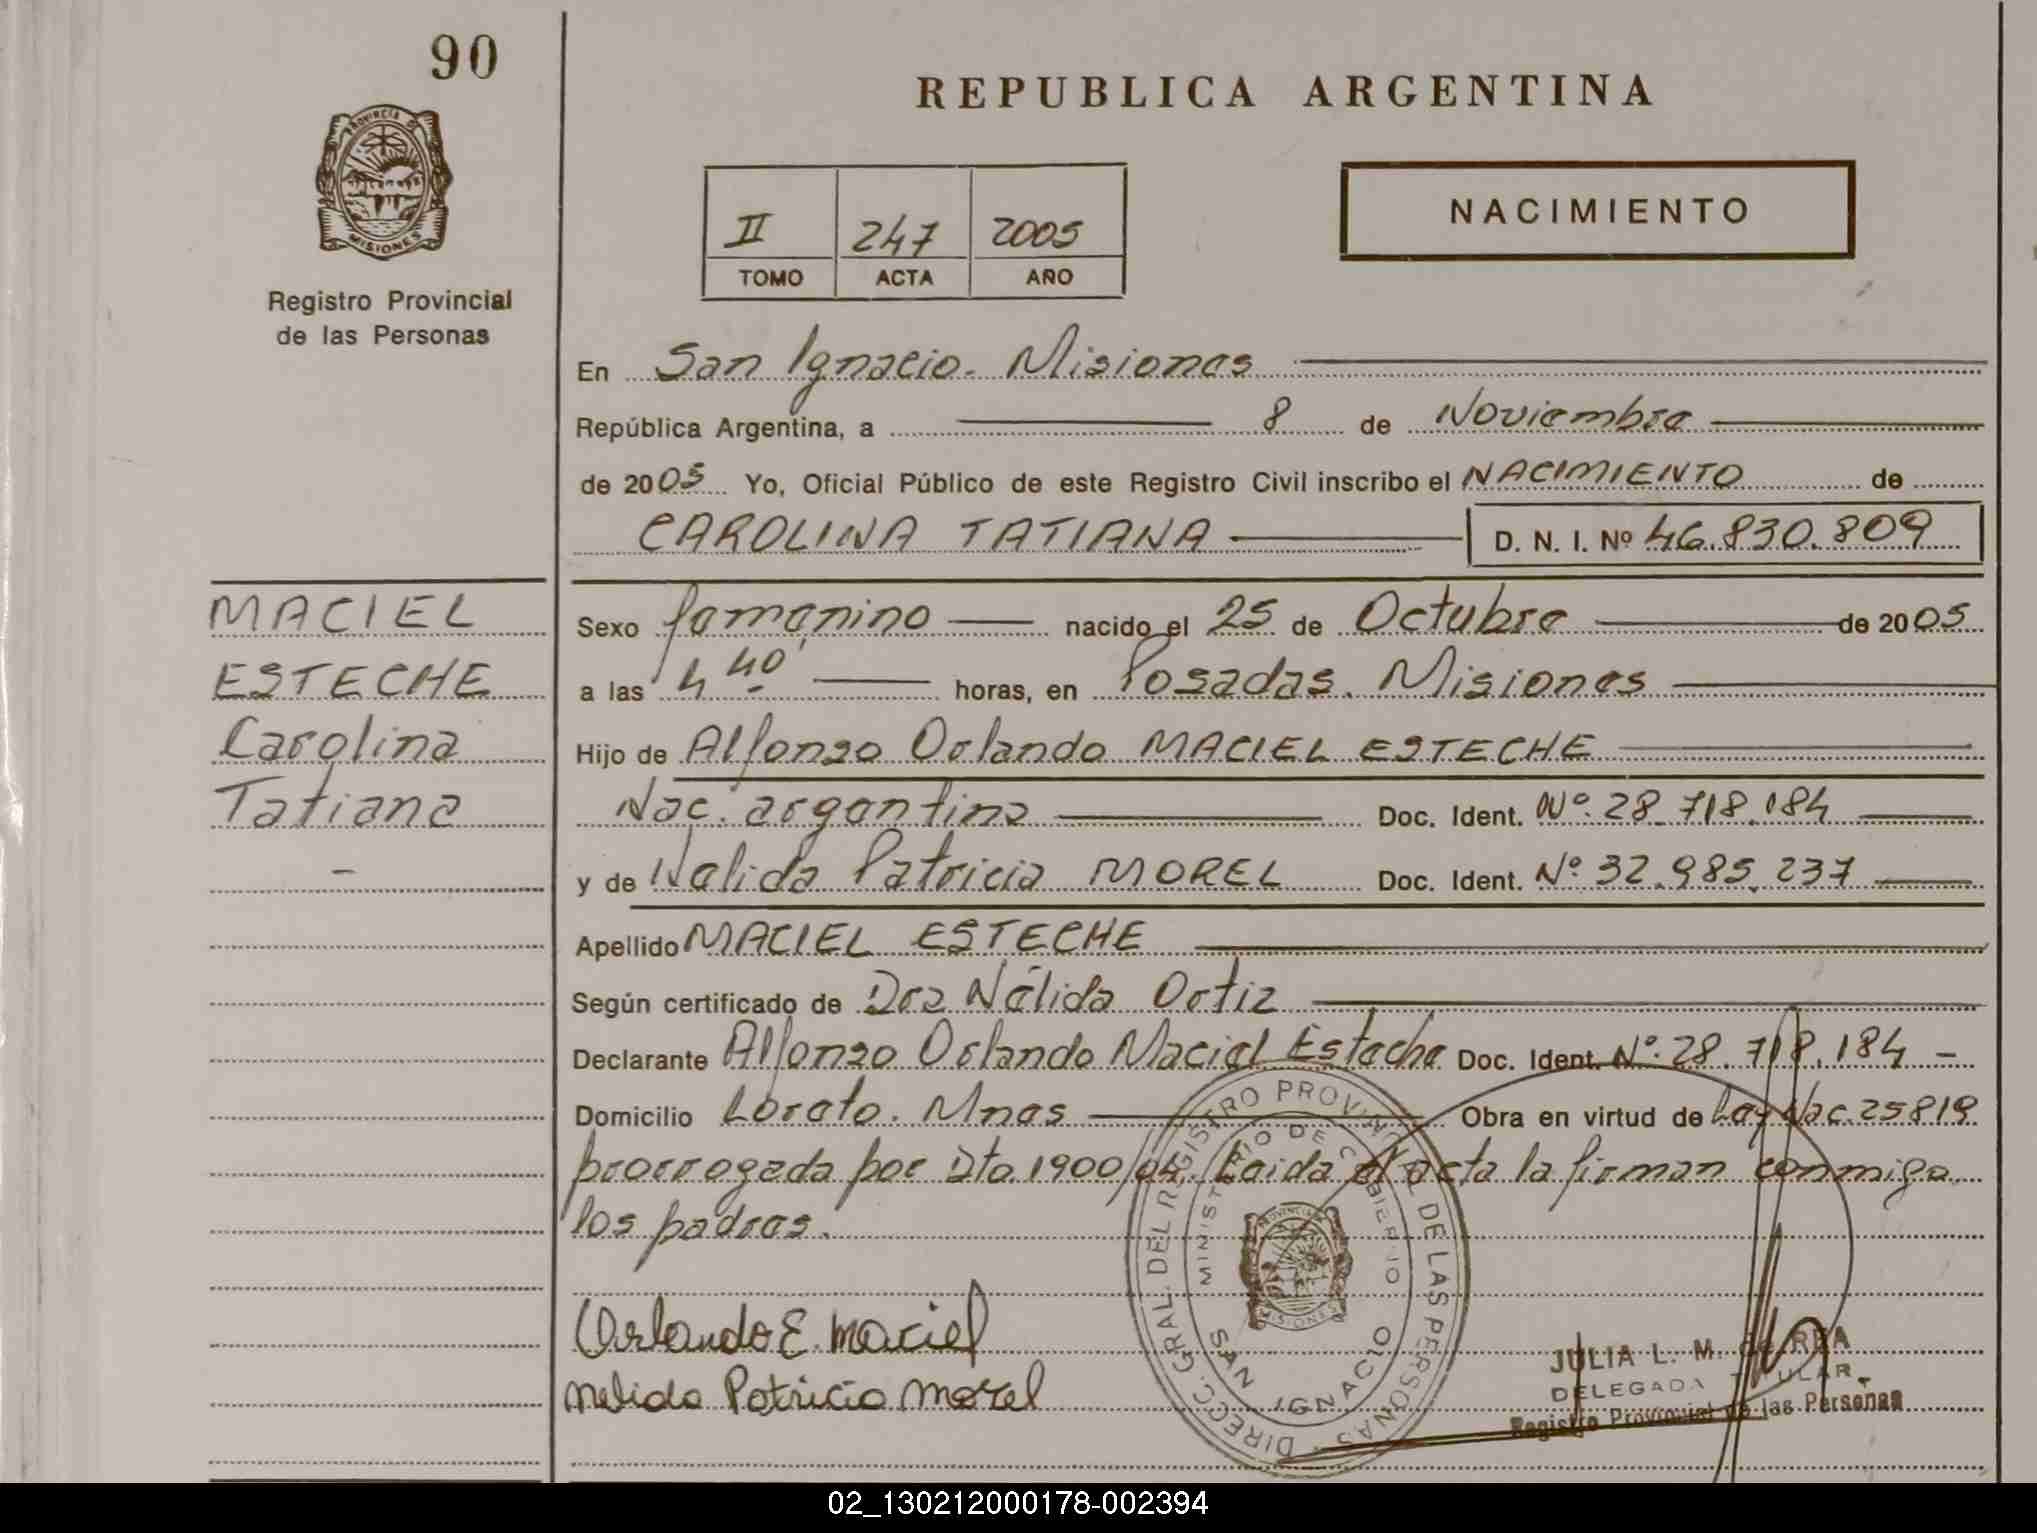 90
REPUBLICA ARGENTINA
PROVINCIA DE
MISIONES
Registro Provincial
de las Personas
II 247 2005
TOMO ACTA AÑO
NACIMIENTO
En San Ignacio. Misiones
República Argentina, a 8 de Noviembre
de 2005 Yo, Oficial Público de este Registro Civil inscribo el NACIMIENTO de
CAROLINA TATIANA D. N. I. Nº 46.830.809
MACIEL
ESTECHE
Carolina
Tatiana
Sexo femenino nacido el 25 de Octubre de 2005
a las 4 40' horas, en Posadas. Misiones
Hijo de Alfonso Orlando MACIEL ESTECHE
Nac. argentina Doc. Ident. Nº. 28.718.184
y de Nelida Patricia MOREL Doc. Ident. Nº 32.985.237
Apellido MACIEL ESTECHE
Según certificado de Dra Nélida Ortiz
Declarante Alfonso Orlando Maciel Esteche Doc. Ident. Nº. 28.718.184
Domicilio Loreto. Mnes Obra en virtud de Ley Nac. 25819
prorrogada por Dto. 1900/04. Leida el acta la firman conmigo
los padres.
Orlando E. Maciel
Nelida Patricia Morel
DIRECC. GRAL. DEL REGISTRO PROVINCIAL DE LAS PERSONAS
MINISTERIO DE GOBIERNO
SAN IGNACIO
JULIA L. M. de REA
DELEGADA TITULAR
Registro Provincial de las Personas
02_130212000178-002394